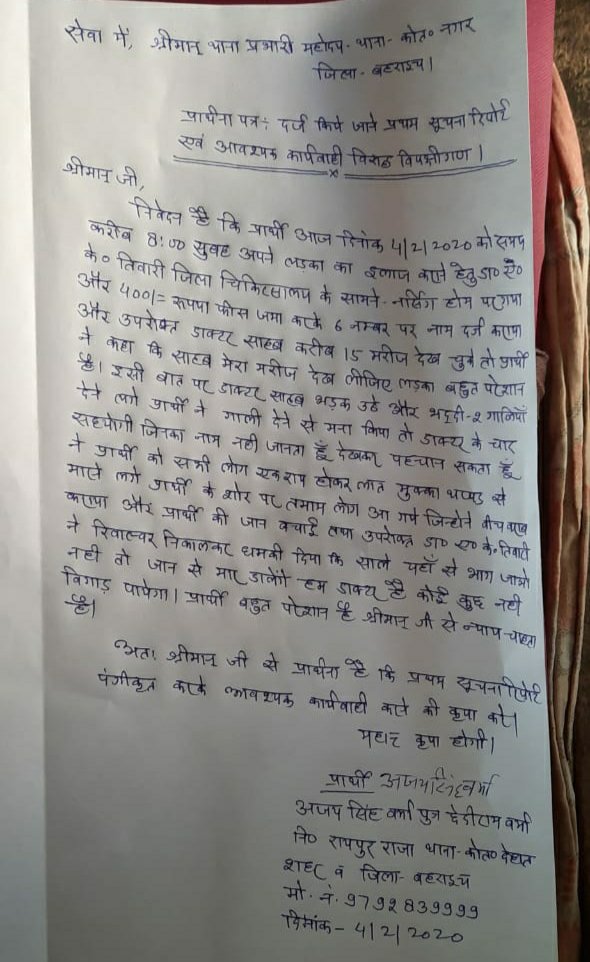 सेवा में, श्रीमान् थाना प्रभारी महोदय- थाना- कोत० नगर
जिला- बहराइच।
प्रार्थना पत्र:- दर्ज किये जाने प्रथम सूचना रिपोर्ट
एवं आवश्यक कार्यवाही विरुद्ध विपक्षीगण।
श्रीमान् जी,
निवेदन है कि प्रार्थी आज दिनांक 4/2/2020 को समय
करीब 8:00 सुबह अपने लड़का का इलाज कराने हेतु डा० ऐ०
के० तिवारी जिला चिकित्सालय के सामने- नर्सिंग होम पर गया
और 400/= रूपया फीस जमा करके 6 नम्बर पर नाम दर्ज कराया
और उपरोक्त डाक्टर साहब करीब 15 मरीज देख चुके तो प्रार्थी
ने कहा कि साहब मेरा मरीज देख लीजिए लड़का बहुत परेशान
है। इसी बात पर डाक्टर साहब भड़क उठे और भद्दी-२ गालियाँ
देने लगे प्रार्थी ने गाली देने से मना किया तो डाक्टर के चार
सहयोगी जिनका नाम नही जानता हूँ देखकर पहचान सकता हूँ
ने प्रार्थी को सभी लोग एक राय होकर लात मुक्का थप्पड़ से
मारने लगे प्रार्थी के शोर पर तमाम लोग आ गये जिन्होने बीच बचाव
कराया और प्रार्थी की जान बचाई तथा उपरोक्त डा० ए० के० तिवारी
ने रिवाल्वर निकालकर धमकी दिया कि साले यहाँ से भाग जाओ
नही तो जान से मार डालेंगे हम डाक्टर है कोई कुछ नही
विगाड़ पायेगा। प्रार्थी बहुत परेशान है श्रीमान् जी से न्याय चाहता
है।
अतः श्रीमान् जी से प्रार्थना है कि प्रथम सूचना रिपोर्ट
पंजीकृत करके आवश्यक कार्यवाही करने की कृपा करें।
महान् कृपा होगी।
प्रार्थी अजयसिंह वर्मा
अजय सिंह वर्मा पुत्र छेदीराम वर्मा
नि० रायपुर राजा थाना- कोत० देहात
शहर व जिला- बहराइच
मो. नं. 9792839999
दिनांक- 4/2/2020